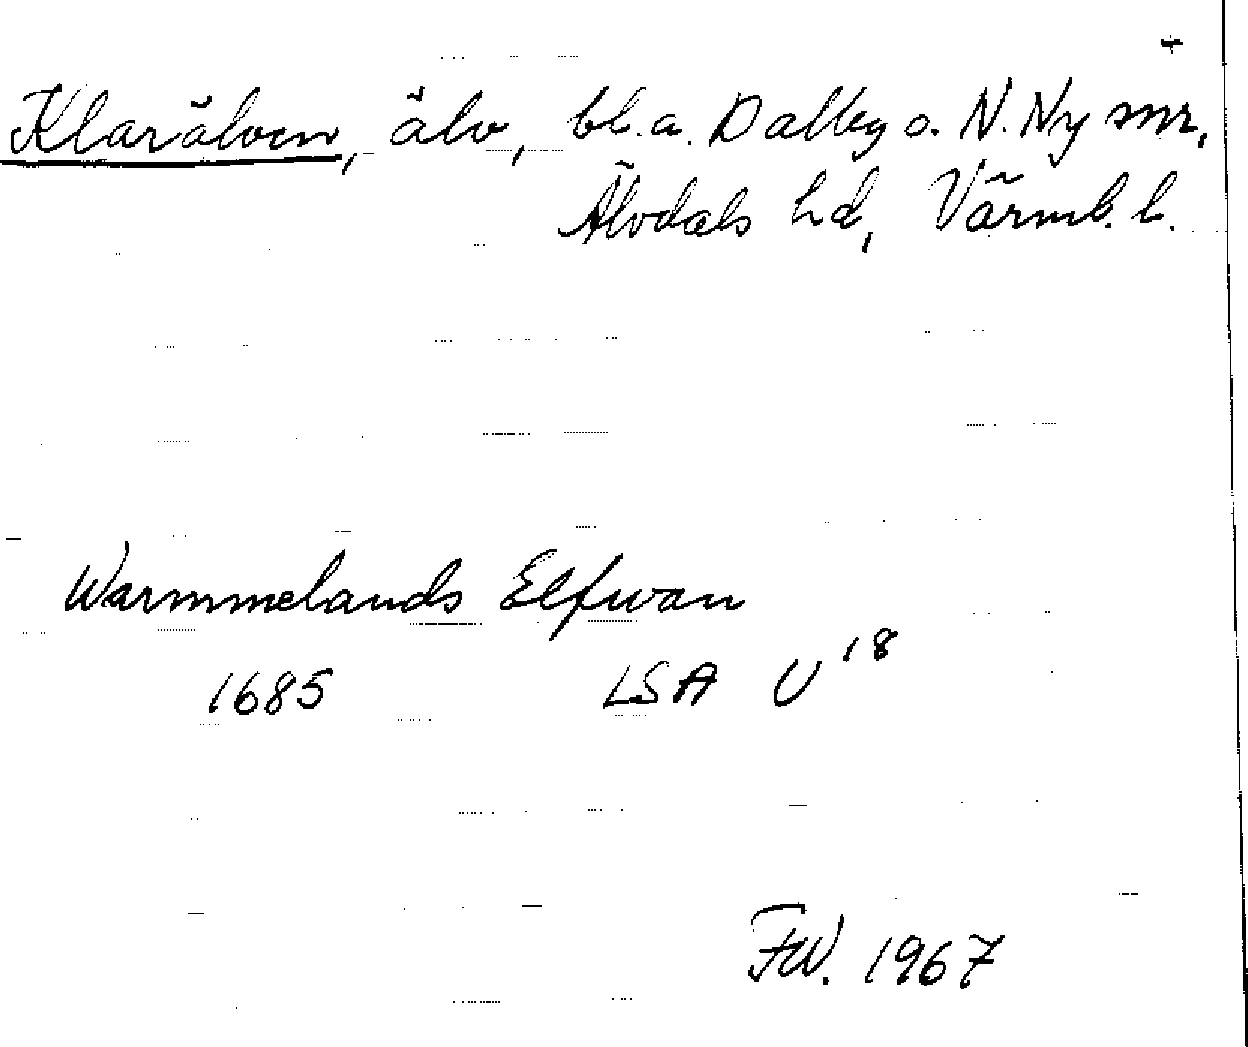 Klarälven, älv, bl.a. Dalby o. N. Ny snr,
Älvdals hd, Värml. l.
Warmmelands Elfwan
1685 LSA U 18
FW. 1967